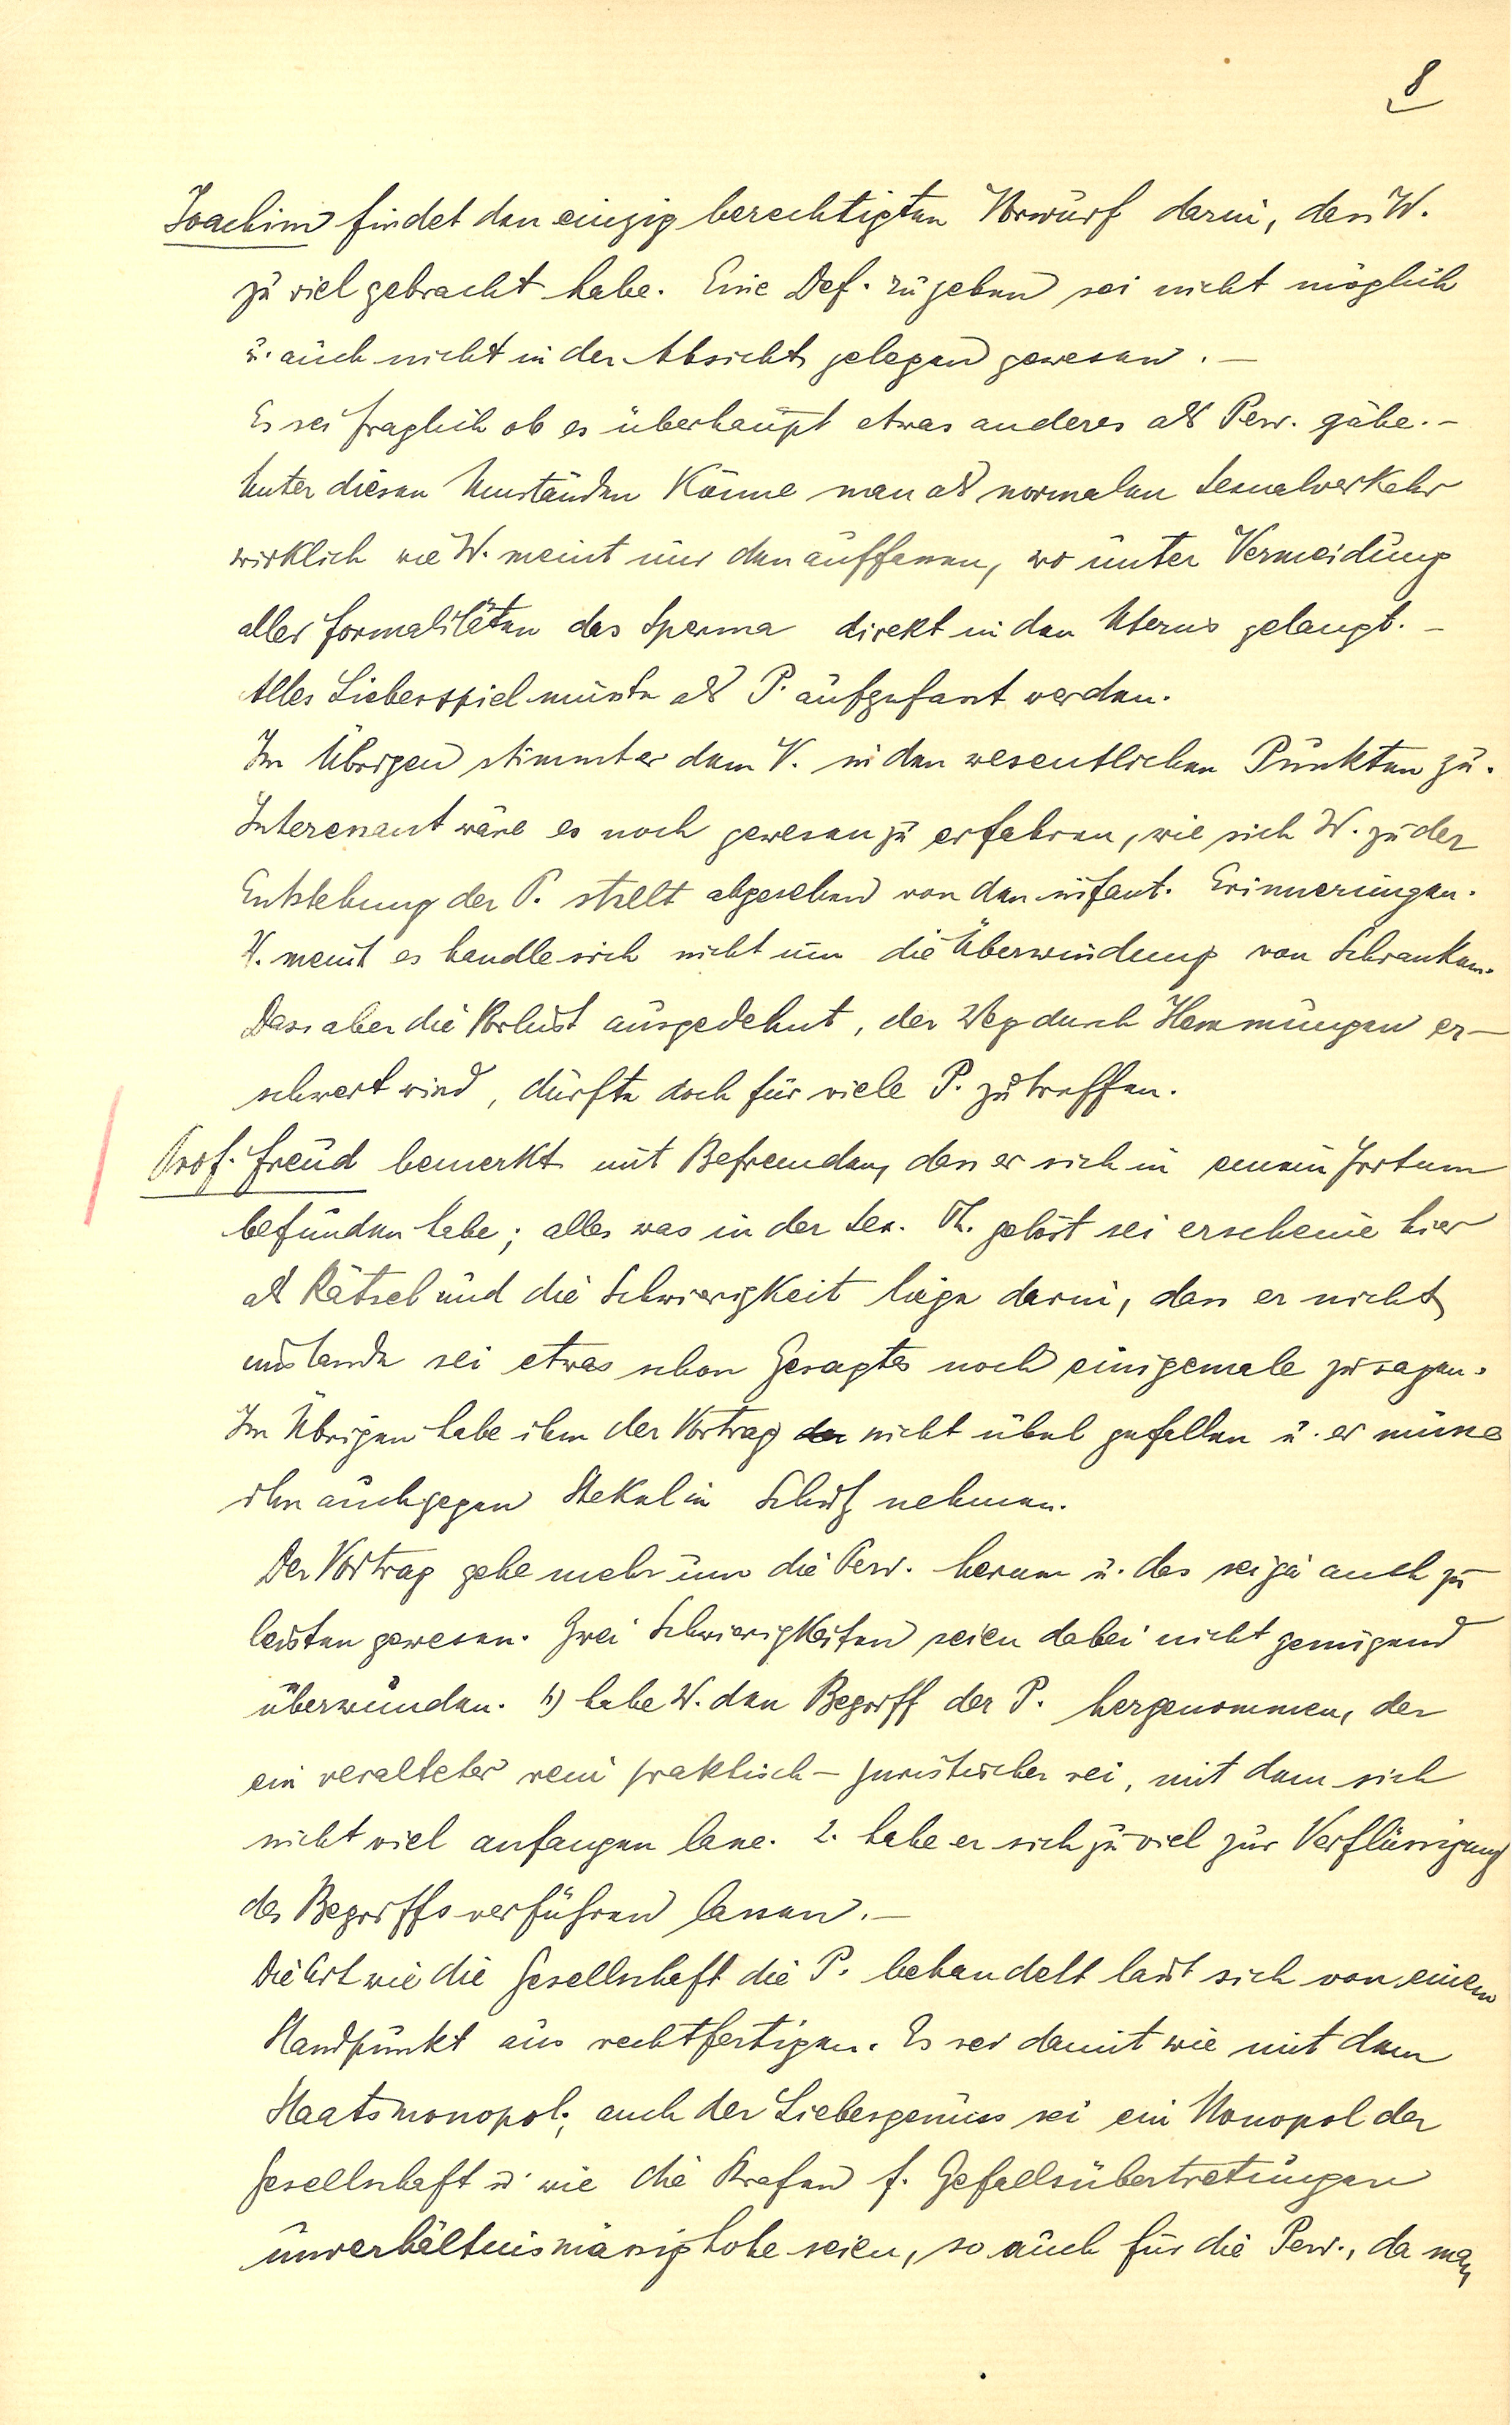 8
Joachim findet den einzig berechtigten Vorwurf darin, dass W.
zu viel gebracht habe. Eine Def. zu geben sei nicht möglich
u. auch nicht in der Absicht gelegen gewesen. –
Es sei fraglich ob es überhaupt etwas anderes als Perv. gäbe. –
Unter diesen Umständen könne man als normalen Sexualverkehr
wirklich wie W. meint nur den auffassen, wo unter Vermeidung
aller Formalitäten das Sperma direkt in den Uterus gelangt. –
Alles Liebesspiel müsste als P. aufgefasst werden.
Im Übrigen stimmt er dem V. in den wesentlichen Punkten zu.
Interessant wäre es noch gewesen zu erfahren, wie sich W. zu der
Entstehung der P. stellt abgesehen von den infant. Erinnerungen.
W. meint es handle sich nicht um die Überwindung von Schranken.
Dass aber die Vorlust ausgedehnt, der Weg durch Hemmungen er–
schwert wird, dürfte doch für viele P. zutreffen.
Prof. Freud bemerkt mit Befremden, dass er sich in einem Irrtum
befunden habe; alles was in der Sex. Th. gelöst sei erscheine hier
als Rätsel und die Schwierigkeit liege darin, dass er nicht
imstande sei etwas schon Gesagtes noch einigemale zu sagen.
Im Übrigen habe ihm der Vortrag nicht übel gefallen u. er müsse
ihn auch gegen Stekel in Schutz nehmen.
Der Vortrag gehe mehr um die Perv. herum u. das sei ja auch zu
leisten gewesen. Zwei Schwierigkeiten seien dabei nicht genügend
überwunden. 1) habe W. den Begriff der P. hergenommen, der
ein veralteter rein praktisch – juristischer sei, mit dem sich
nicht viel anfangen lasse. 2. habe er sich zu viel zur Verflüssigung
des Begriffs verführen lassen. –
Die Art wie die Gesellschaft die P. behandelt lasst sich von einem
Standpunkt aus rechtfertigen. Es sei damit wie mit dem
Staatsmonopol; auch der Liebesgenuss sei ein Monopol der
Gesellschaft u. wie die Strafen f. Gefällsübertretungen
unverhältnismässig hohe seien, so auch für die Perv., da man